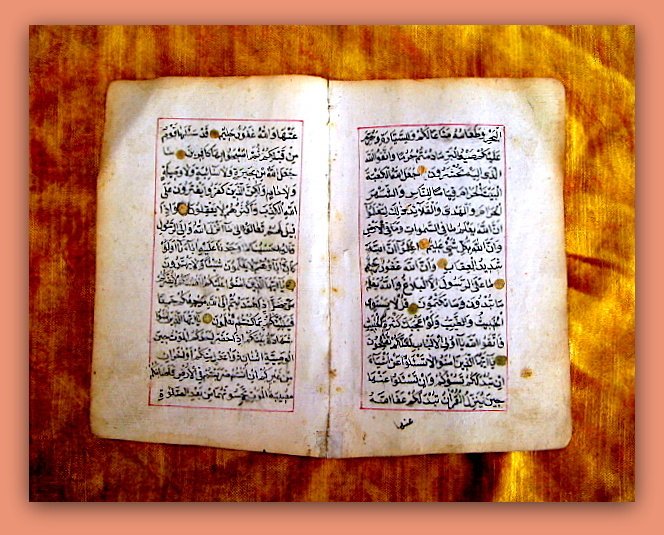 البحر وطعامه متاعا لكم وللسيارة وحرم
عليكم صيد البر ما دمتم حرما واتقوا الله
الذي اليه تحشرون جعل الله الكعبة
البيت الحرام قياما للناس والشهر
الحرام والهدي والقلائد ذلك لتعلموا
ان الله يعلم ما في السموات وما في الارض
وان الله بكل شيء عليم اعلموا ان الله
شديد العقاب وان الله غفور رحيم
ما على الرسول الا البلاغ والله يعلم
ما تبدون وما تكتمون قل لا يستوي
الخبيث والطيب ولو اعجبك كثرة الخبيث
فاتقوا الله يا اولي الالباب لعلكم تفلحون
يا ايها الذين امنوا لا تسئلوا عن اشياء
ان تبد لكم تسؤكم وان تسئلوا عنها
حين ينزل القرآن تبد لكم عفا الله
عنها
عنها والله غفور حليم قد سألها قوم
من قبلكم ثم اصبحوا بها كافرين ما
جعل الله من بحيرة ولا سائبة ولا وصيلة
ولا حام ولكن الذين كفروا يفترون على
الله الكذب واكثرهم لا يعقلون واذا
قيل لهم تعالوا الى ما انزل الله والى الرسول
قالوا حسبنا ما وجدنا عليه اباءنا اولو
كان اباؤهم لا يعلمون شيئا ولا يهتدون
يا ايها الذين امنوا عليكم انفسكم لا يضركم
من ضل اذا اهتديتم الى الله مرجعكم جميعا
فينبئكم بما كنتم تعملون يا ايها الذين امنوا
شهادة بينكم اذا حضر احدكم الموت حين
الوصية اثنان ذوا عدل منكم او اخران
من غيركم ان انتم ضربتم في الارض فاصابتكم
مصيبة الموت تحبسونهما من بعد الصلوة